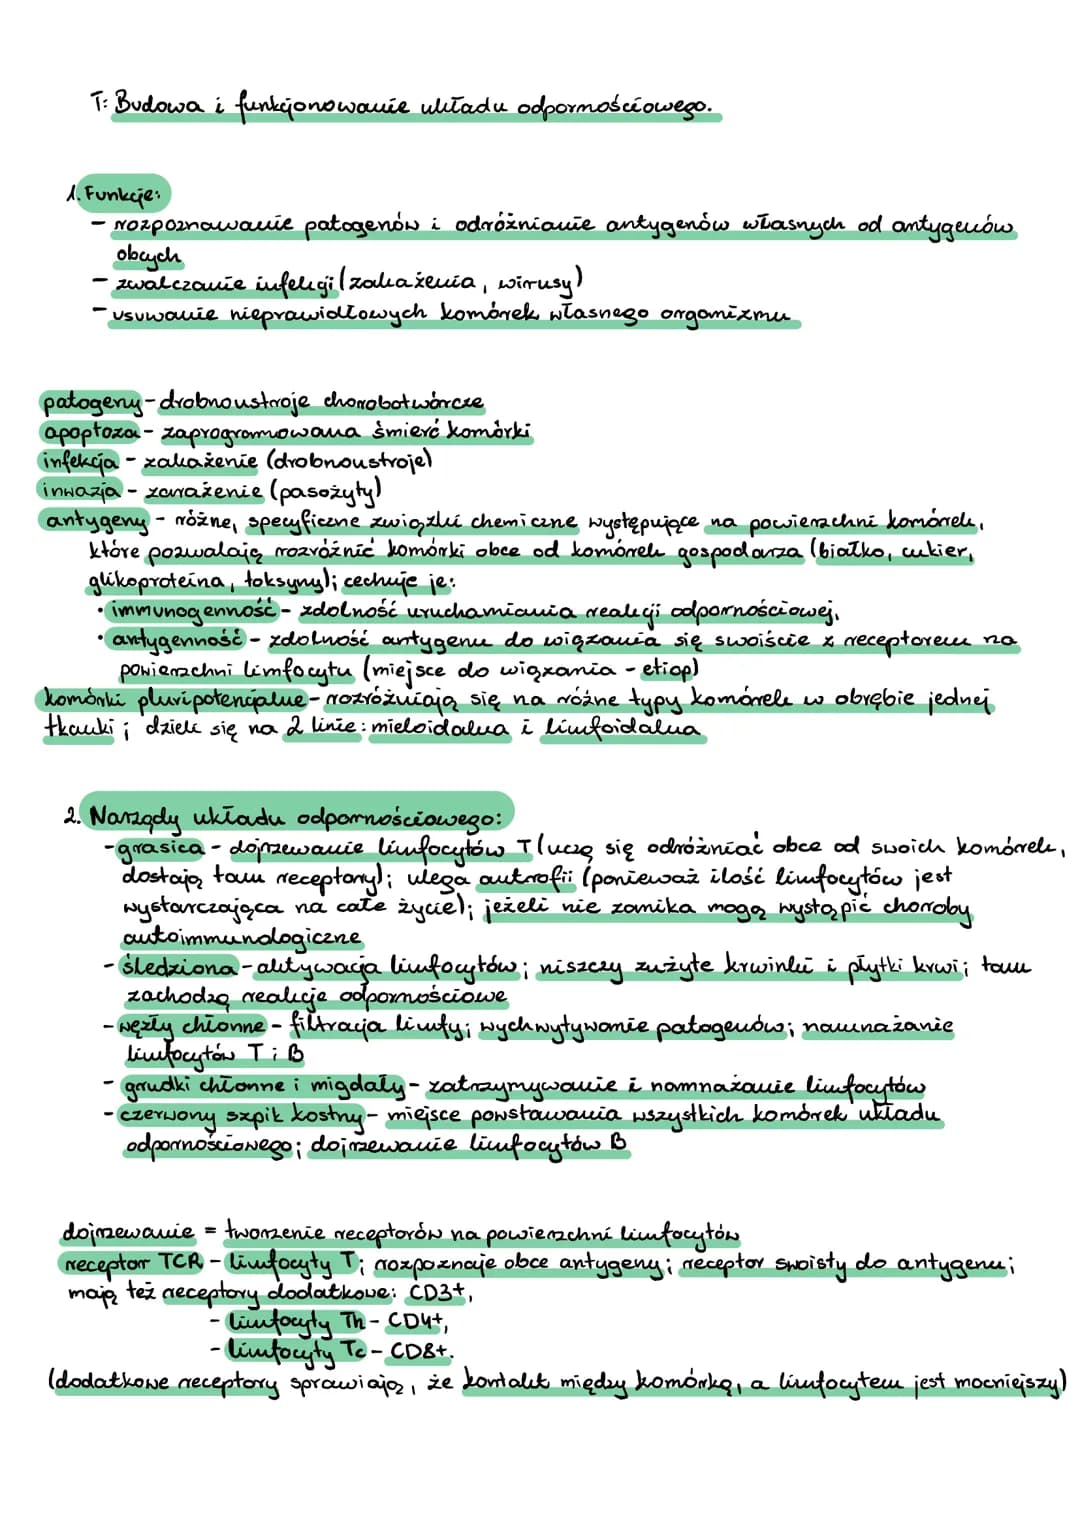 T: Budowa i funkcjonowanie układu odpornościowego.
1. Funkcje:
- rozpoznawanie patogenów i odróżnianie antygenów własnych od antygenów
obcych
- zwalczanie infekcji (zakażenia, wirusy)
- usuwanie nieprawidłowych komórek własnego organizmu
patogeny - drobnoustroje chorobotwórcze
apoptoza - zaprogramowana śmierć komórki
infekcja - zakażenie (drobnoustroje)
inwazja - zarażenie (pasożyty)
antygeny - różne, specyficzne związki chemiczne występujące na powierzchni komórek,
które pozwalają rozróżnić komórki obce od komórek gospodarza (białko, cukier,
glikoproteina, toksyny); cechuje je:
• immunogenność - zdolność uruchamiania reakcji odpornościowej,
• antygenność - zdolność antygenu do wiązania się swoiście z receptorem na
powierzchni limfocytu (miejsce do wiązania - etiop)
komórki pluripotencjalne - rozróżniają się na różne typy komórek w obrębie jednej
tkanki; dzieli się na 2 linie: mieloidalna i limfoidalna
2. Narządy układu odpornościowego:
- grasica - dojrzewanie limfocytów T (uczą się odróżniać obce od swoich komórek,
dostają tam receptory); ulega autrofii (ponieważ ilość limfocytów jest
wystarczająca na całe życie); jeżeli nie zanika mogą wystąpić choroby
autoimmunologiczne
- śledziona - aktywacja limfocytów; niszczy zużyte krwinki i płytki krwi; tam
zachodzą reakcje odpornościowe
- węzły chłonne - filtracja limfy; wychwytywanie patogenów; namnażanie
limfocytów T i B
- grudki chłonne i migdały - zatrzymywanie i namnażanie limfocytów
- czerwony szpik kostny - miejsce powstawania wszystkich komórek układu
odpornościowego; dojrzewanie limfocytów B
dojrzewanie = tworzenie receptorów na powierzchni limfocytów
receptor TCR - limfocyty T; rozpoznaje obce antygeny; receptor swoisty do antygenu;
mają też receptory dodatkowe: CD3+,
- limfocyty Th - CD4+,
- limfocyty Tc - CD8+.
(dodatkowe receptory sprawiają, że kontakt między komórką, a limfocytem jest mocniejszy)